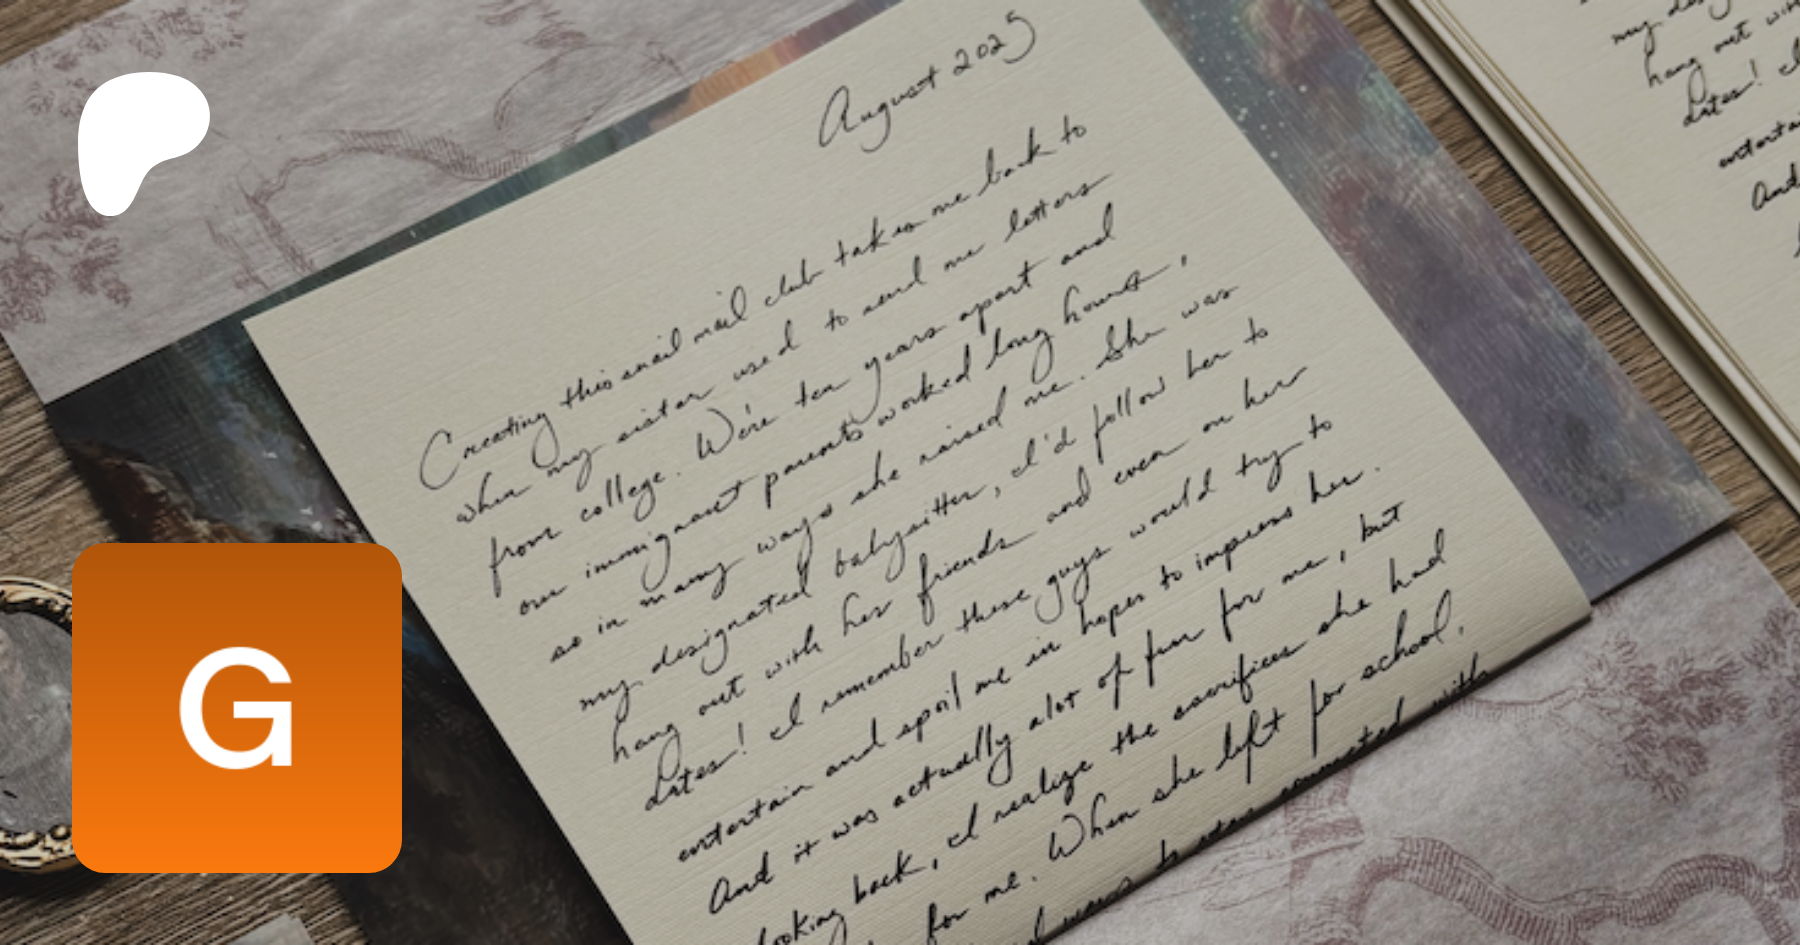 August 2025
Creating this snail mail club takes me back to
when my sister used to send me letters
from college. We're ten years apart and
our immigrant parents worked long hours,
so in many ways she raised me. She was
my designated babysitter, I'd follow her to
hang out with her friends and even on her
dates! I remember these guys would try to
entertain and spoil me in hopes to impress her.
And it was actually alot of fun for me, but
looking back, I realize the sacrifices she had
for me. When she left for school,
ways to stay connected with
my
hang out with
dates! I
entertain
And
G